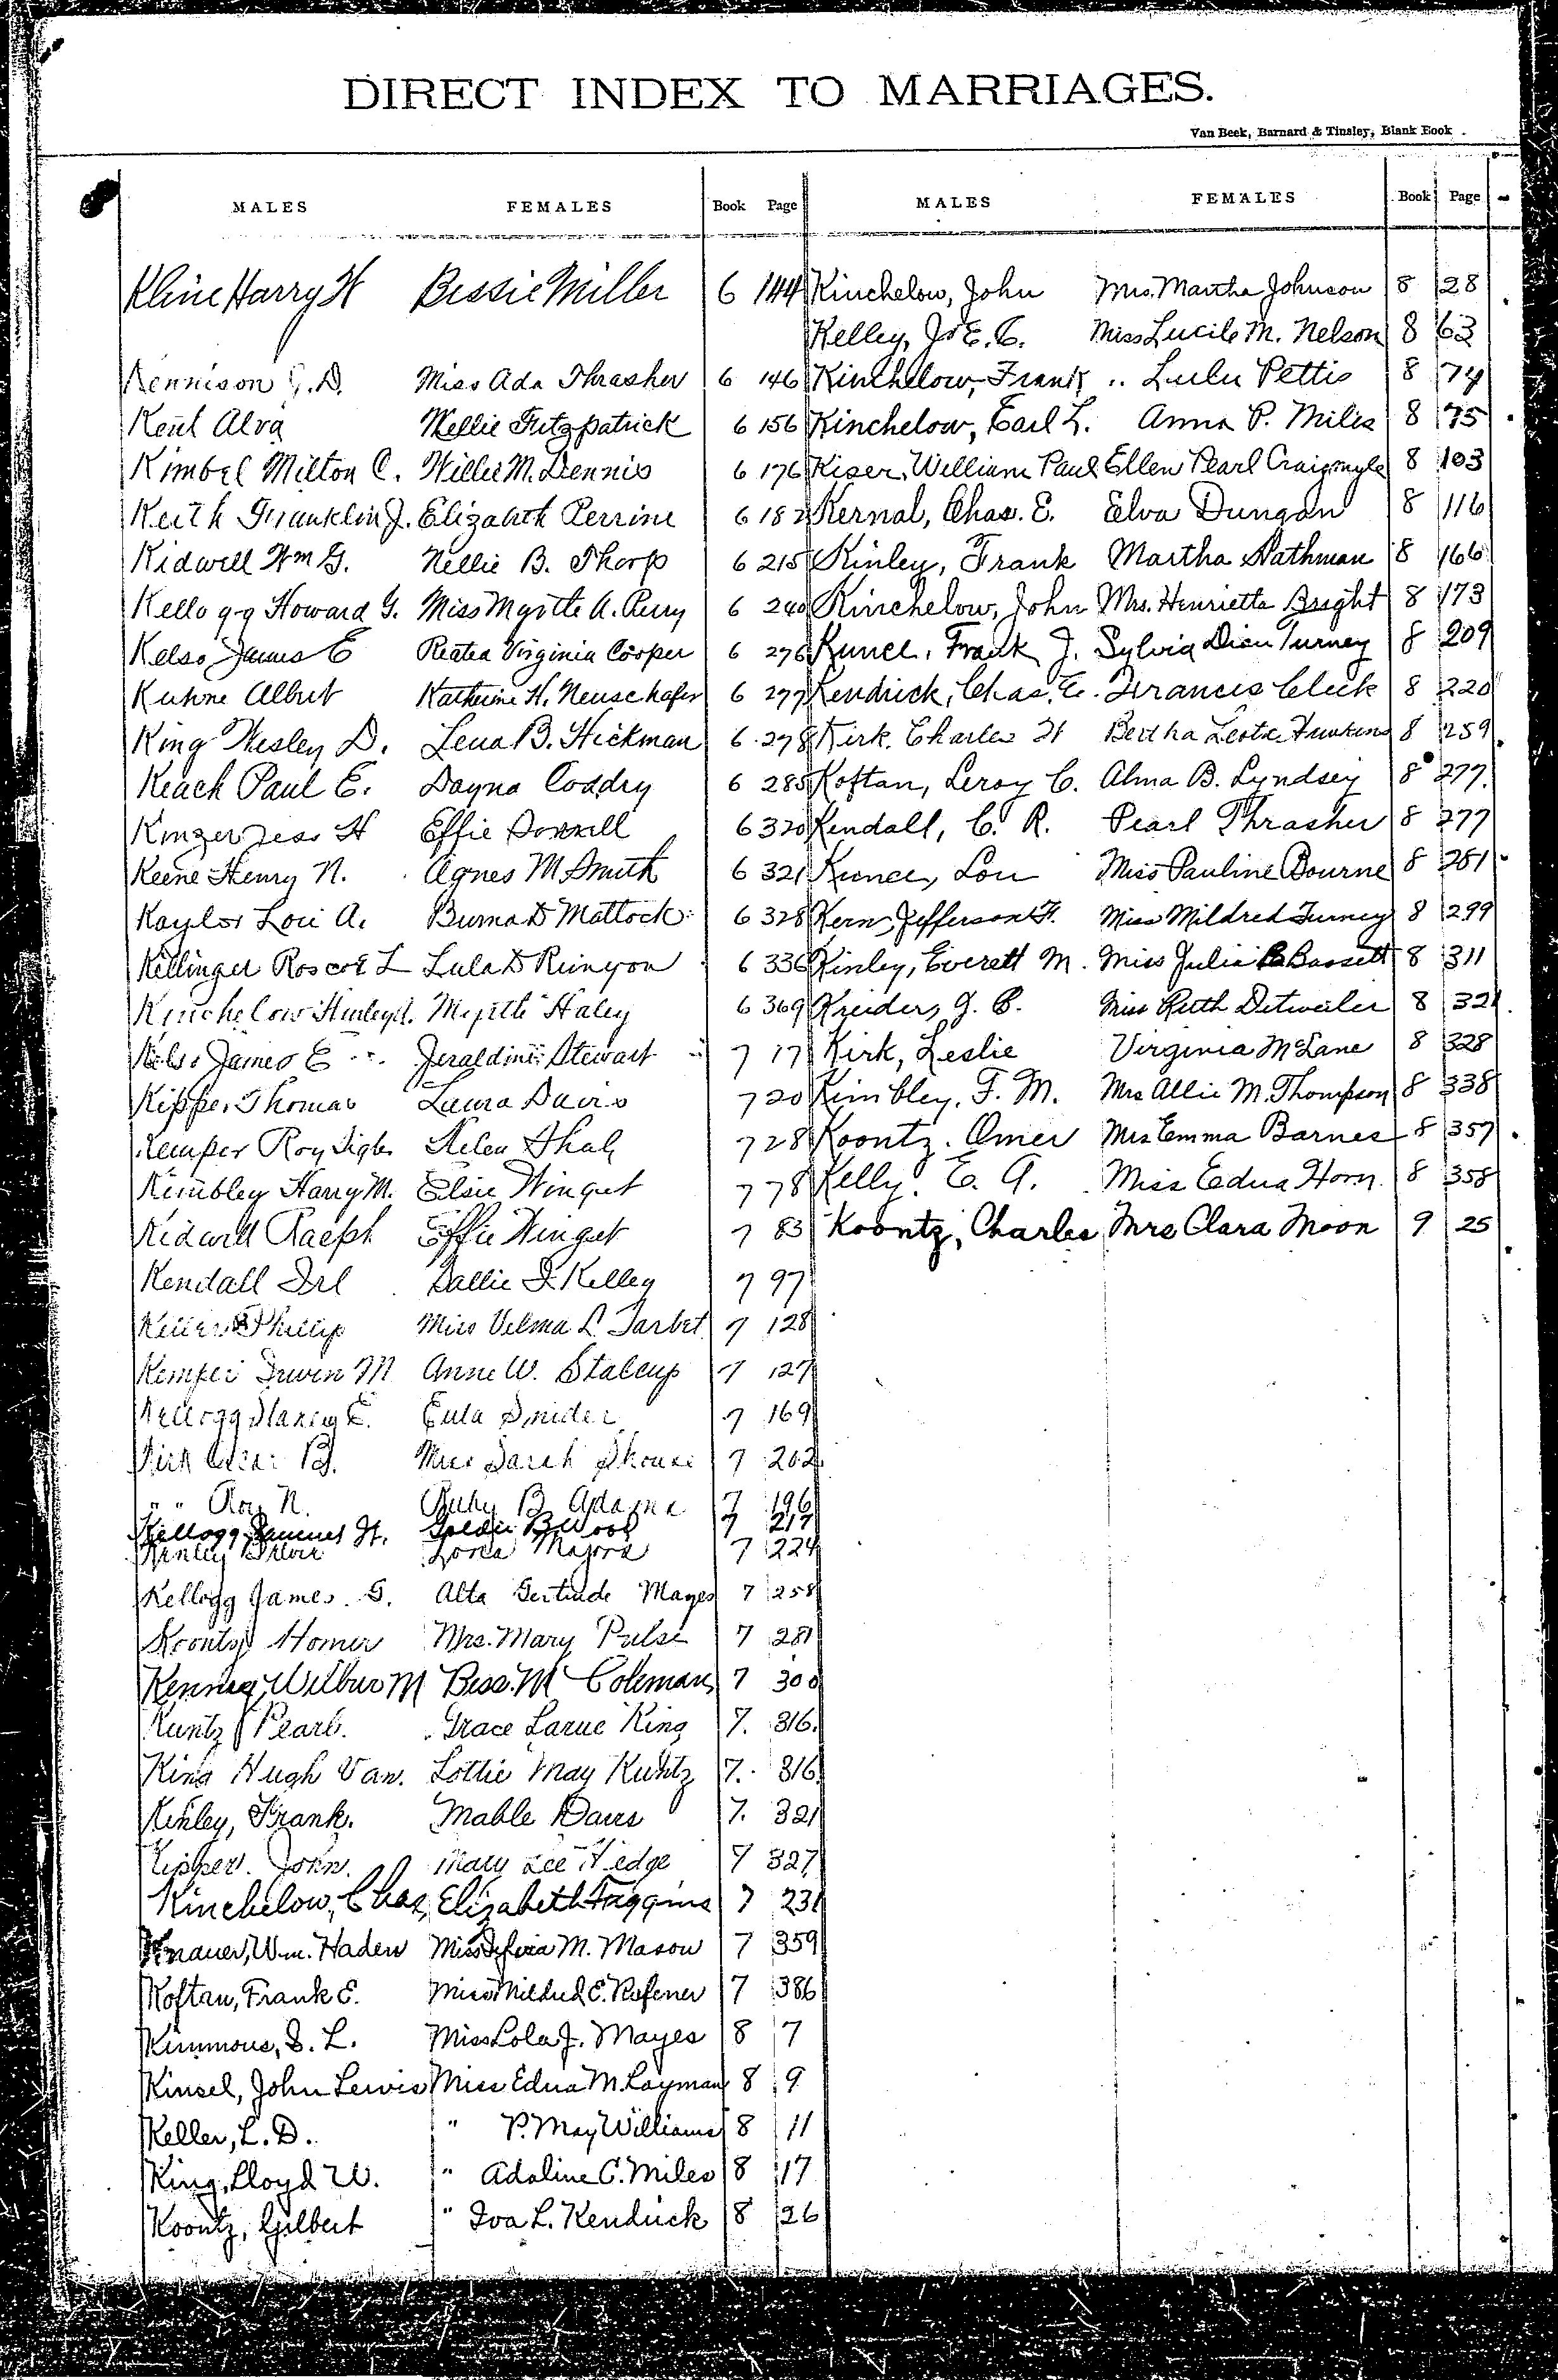 DIRECT INDEX TO MARRIAGES.
Van Beek, Barnard & Tinsley, Blank Book
MALES FEMALES Book Page MALES FEMALES Book Page
Kline Harry H Bessie Miller 6 144
Kennison G.D. Miss Ada Thrasher 6 146
Kent Alva Nellie Fitzpatrick 6 156
Kimbel Milton C. Willie M. Dennis 6 176
Keith Franklin J. Elizabeth Perrine 6 182
Kidwell Wm G. Nellie B. Thorp 6 215
Kellogg Howard G. Miss Myrtle A. Perry 6 240
Kelso James E Reatea Virginia Cooper 6 276
Kuhne Albert Katherine H. Neuschafer 6 277
King Wesley D. Lena B. Hickman 6 278
Keach Paul E. Dayna Coddry 6 285
Kinzer Jess H Effie 6 320
Keene Henry N. Agnes M Smith 6 321
Kaylor Loii A. Burna D Mattock 6 328
Killinger Roscoe L Lula D Runyon 6 336
Kinchelow Myrtle Haley 6 369
Kelso James E Jeraldine Stewart 7 17
Kipper Thomas Laura Davis 7 20
Kemper Roy Helen 7 28
Kimbley Harry M. Elsie Winget 7 78
Kidwell Ralph Effie Winget 7 83
Kendall Irl Sallie F. Kelley 7 97
Phillip Miss Velma L Tarbet 7 128
Kemper Irwin M Anne W. Stalcup 7 127
Kellogg E. Eula Snider 7 169
Kirk B. Miss Sarah Shouse 7 202
" " Roy N. Ruby B. Adams 7 196
Kellogg Samuel H. Goldie B Wood 7 217
Kinley Lorea Majors 7 224
Kellogg James G. Alta Gertrude Mayes 7 258
Koontz Homer Mrs. Mary Pulse 7 281
Wilbur M Bess M Coleman 7 300
Kuntz Pearl. Grace Larue King 7. 316.
King Hugh Van. Lottie May Kuntz 7. 316
Kinley, Frank. Mable Davis 7. 321
Kipper. John. Mary Lee Hedge 7 327
Kinchelow, Chas, Elizabeth 7 231
Knauer, Wm. Haden Miss Sylvia M. Mason 7 359
Koftan, Frank E. Miss Mildred E. 7 386
Kimmons, S. L. Miss Lola J. Mayes 8 7
Kinsel, John Lewis Miss Edna M. Layman 8 9
Keller, L. D. " P. May Williams 8 11
King, Lloyd W. " Adaline C. Miles 8 17
Koontz, Gilbert " Iva L. Kendrick 8 26
Kinchelow, John Mrs. Martha Johnson 8 28
Kelley, Jr E. C. Miss Lucile M. Nelson 8 63
Kinchelow, Frank " Lulu Pettis 8 74
Kinchelow, Earl L. Anna P. Miles 8 75
Kiser, William Paul Ellen Pearl Craigmyle 8 103
Kernal, Chas. E. Elva Dungan 8 116
Kinley, Frank Martha Nathman 8 166
Kinchelow, John Mrs. Henrietta Bright 8 173
Kunce, Frank J. Sylvia Turney 8 209
Kendrick, Chas. E. Francis Cleek 8 220
Kirk, Charles H Bertha 8 259
Koftan, Leroy C. Alma B. Lyndsey 8 277
Kendall, C. R. Pearl Thrasher 8 277
Kunce, Lou Miss Pauline Bourne 8 281
Kern, Jefferson F. Miss Mildred Turney 8 299
Kinley, Everett M. Miss Julia B Bassett 8 311
Kreider, J. C. Miss Ruth Detweiler 8 321
Kirk, Leslie Virginia McLane 8 328
Kimbley, F. M. Mrs Allie M. Thompson 8 338
Koontz. Omer Mrs Emma Barnes 8 357
Kelly. E. A. Miss Edna Horn 8 358
Koontz, Charles Mrs Clara Moon 9 25